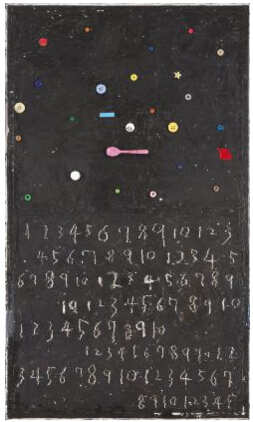 1 2 3 4 5 6 7 8 9 10 1 2 3
4 5 6 7 8 9 10 1 2 3 4 5
6 7 8 9 10 1 2 3 4 5 6 7 8 9
10 1 2 3 4 5 6 7 8 9 10
1 2 3 4 5 6 7 8 9 10
1 2 3 4 5 6 7 8 9 10 1 2
3 4 5 6 7 8 9 10 1 2 3 4 5 6 7
8 9 10 1 2 3 4 5